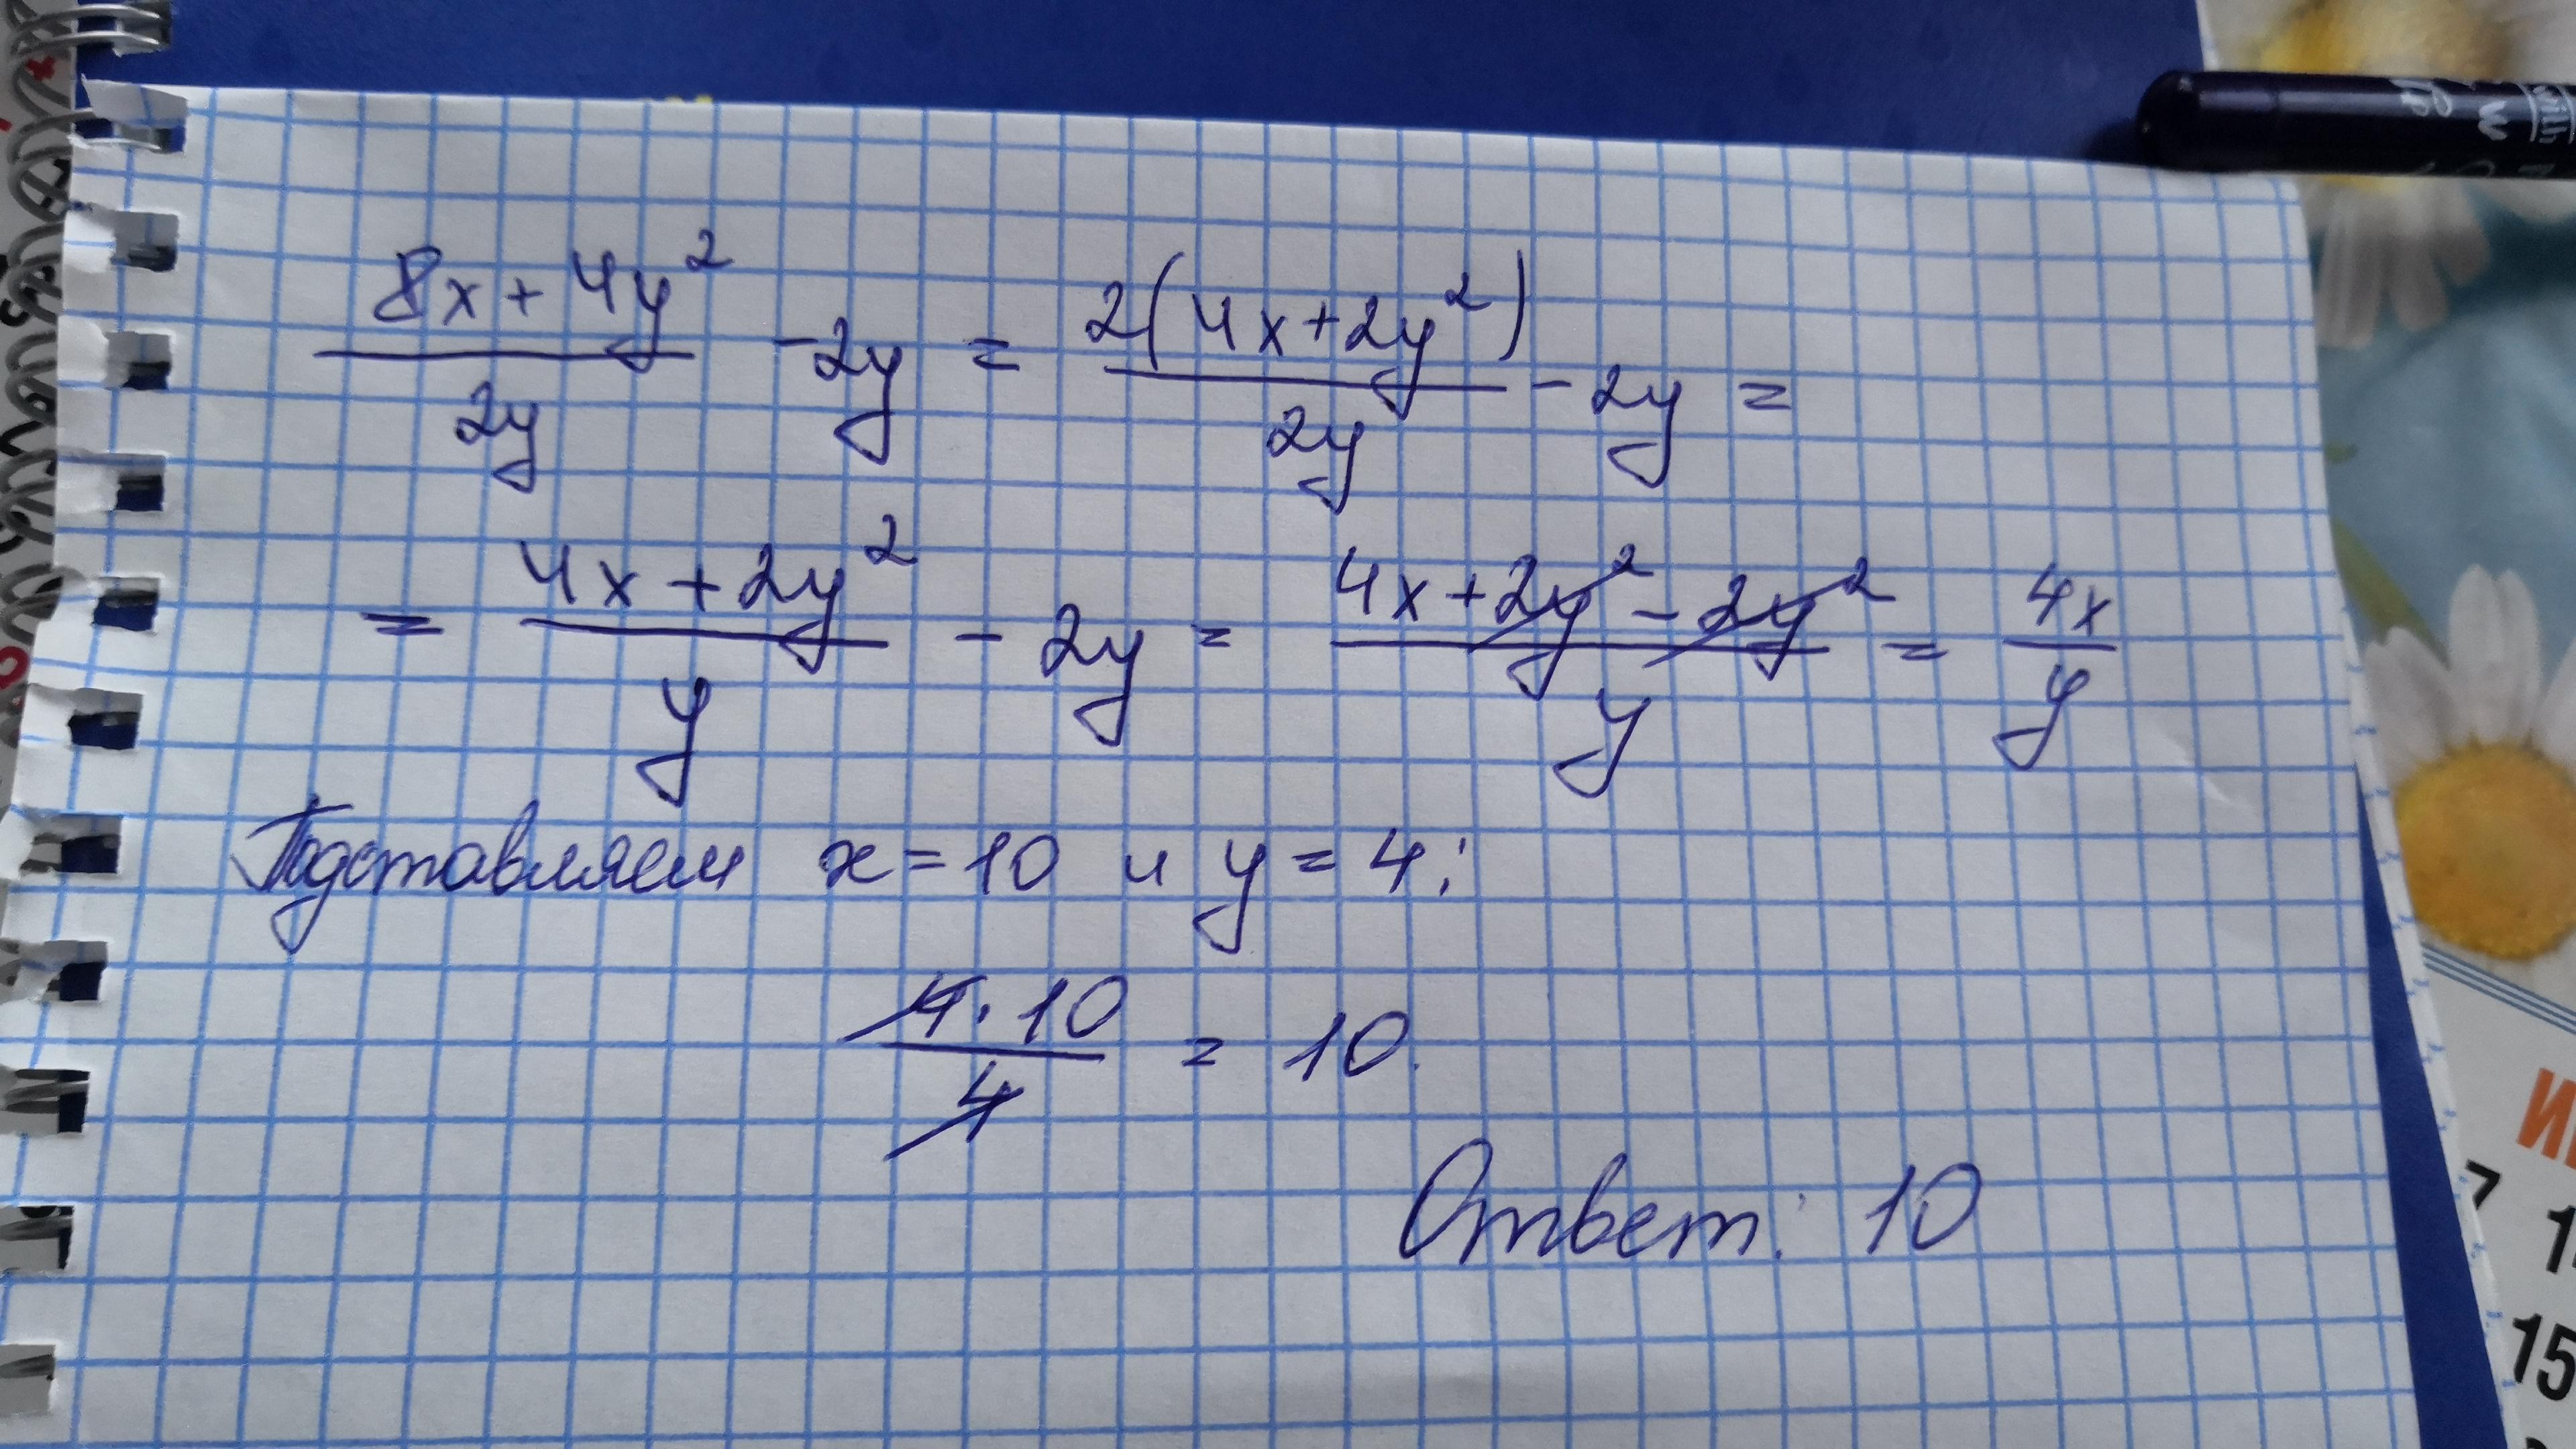 (8x + 4y²)/(2y) - 2y = 2(4x + 2y²)/(2y) - 2y =
= (4x + 2y²)/y - 2y = (4x + 2y² - 2y²)/y = 4x/y
Подставляем x = 10 и y = 4:
(4 · 10)/4 = 10.
Ответ: 10
with
W
7
15